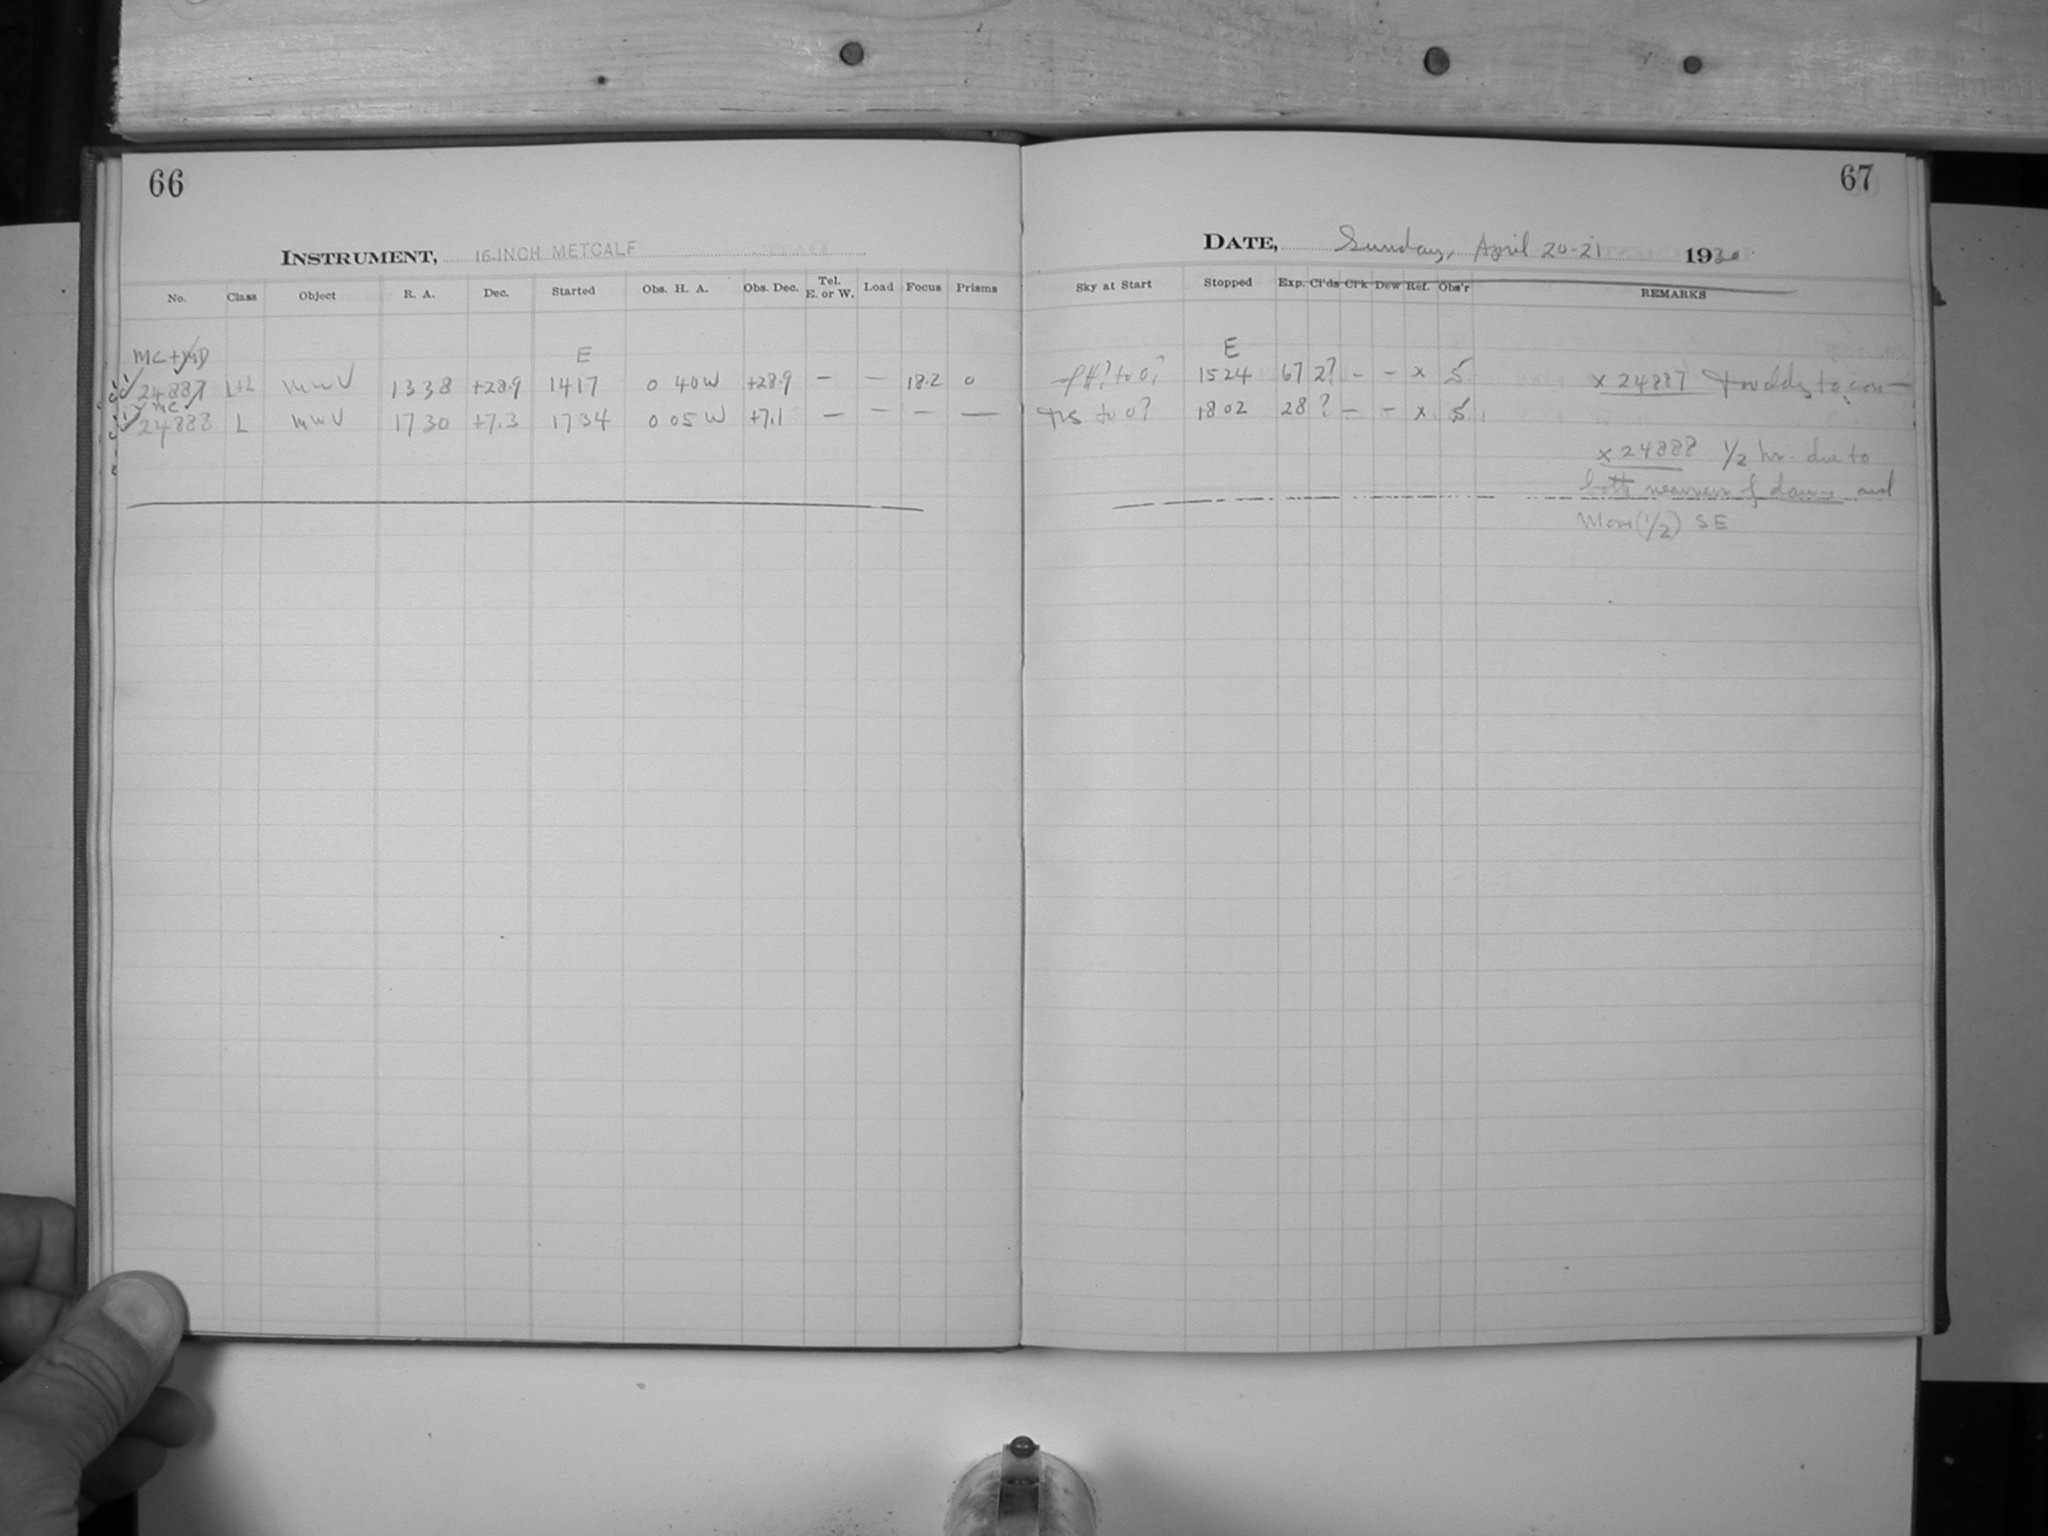 66
67
INSTRUMENT, 16-INCH METCALF
DATE, Sunday, April 20-21 1930
No. Class Object R. A. Dec. Started Obs. H. A. Obs. Dec. Tel. E. or W. Load Focus Prisms
Sky at Start Stopped Exp. Cl'ds Cl'k Dew Ref. Obs'r REMARKS
MC+MD E E
24887 L+L MWV 13 38 +28.9 1417 0 40 W +28.9 — — 18.2 0 to 0? 1524 67 2? - - x 5 x 24887
MC
24888 L MWV 17 30 +7.3 1734 0 05 W +7.1 — — — — to 0? 1802 28 ? — - x 5
x 24888 1/2 hr. due to
both nearness of dawn and
Moon (1/2) SE